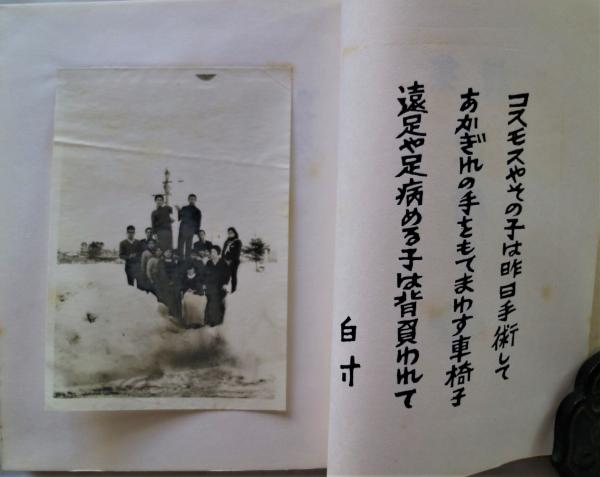 コスモスやその子は昨日手術して
あかぎれの手をもてまわす車椅子
遠足や足病める子は背負われて
白寸